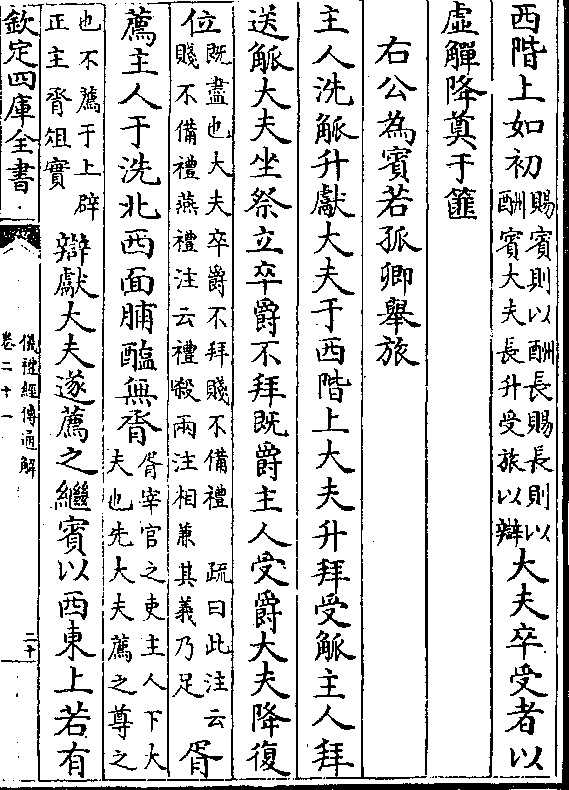 西階上如初賜賓則以酬長賜長則以酬賓大夫長升受旅以辯大夫卒受者以
虛觶降奠于篚
右公為賓若孤卿舉旅
主人洗觚升獻大夫于西階上大夫升拜受觚主人拜
送觚大夫坐祭立卒爵不拜既爵主人受爵大夫降復
位既盡也大夫卒爵不拜賤不備禮　疏曰此注云賤不備禮燕禮注云禮殺兩注相兼其義乃足胥
薦主人于洗北西面脯醢無脀胥宰官之吏主人下大夫也先大夫薦之尊之
也不薦于上辟正主脀俎實辯獻大夫遂薦之繼賓以西東上若有
欽定四庫全書
儀禮經傳通解
卷二十一
二十